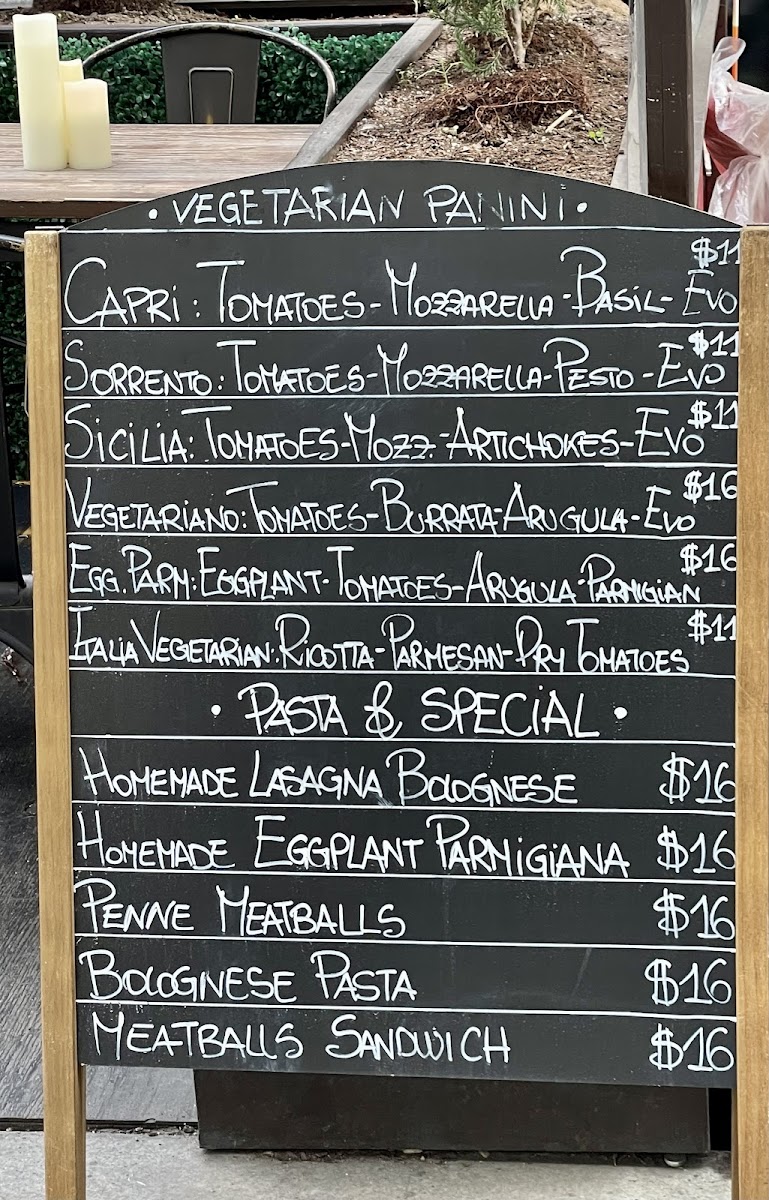 • VEGETARIAN PANINI •
$11
CAPRI: TOMATOES-MOZZARELLA-BASIL-EVO
$11
SORRENTO: TOMATOES-MOZZARELLA-PESTO-EVO
$11
SICILIA: TOMATOES-MOZZ.-ARTICHOKES-EVO
$16
VEGETARIANO: TOMATOES-BURRATA-ARUGULA-EVO
$16
EGG. PARM: EGGPLANT-TOMATOES-ARUGULA-PARMIGIAN
$11
ITALIA VEGETARIAN: RICOTTA-PARMESAN-DRY TOMATOES
• PASTA & SPECIAL •
HOMEMADE LASAGNA BOLOGNESE $16
HOMEMADE EGGPLANT PARMIGIANA $16
PENNE MEATBALLS $16
BOLOGNESE PASTA $16
MEATBALLS SANDWICH $16